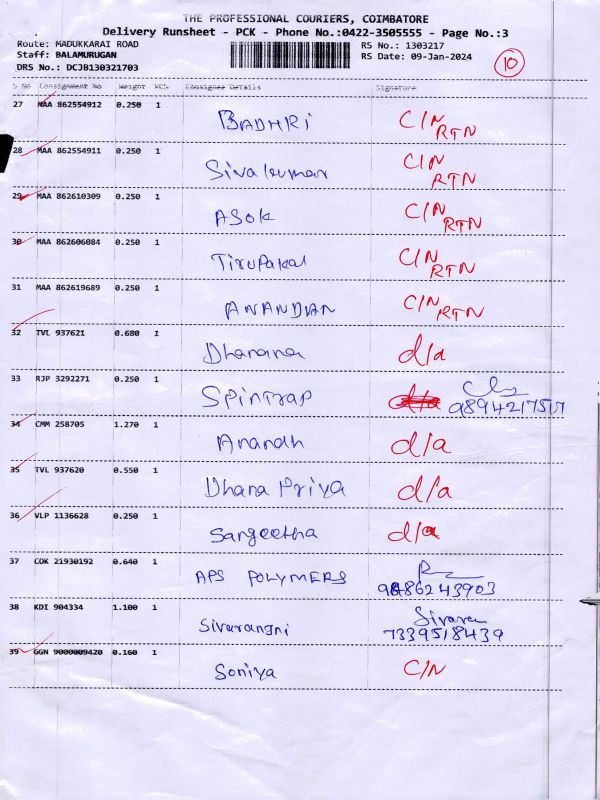 THE PROFESSIONAL COURIERS, COIMBATORE
Delivery Runsheet - PCK - Phone No.:0422-3505555 - Page No.:3
Route: MADUKKARAI ROAD RS No.: 1303217
Staff: BALAMURUGAN RS Date: 09-Jan-2024
DRS No.: DCJB130321703 10
S No Consignment No Weight PCS Consignee Details Signature
27 MAA 862554912 0.250 1 BADHRI C/N RTN
28 MAA 862554911 0.250 1 Sivakumar C/N RTN
29 MAA 862610309 0.250 1 ASok C/N RTN
30 MAA 862606084 0.250 1 Tirupakal C/N RTN
31 MAA 862619689 0.250 1 ANANDAN C/N RTN
32 TVL 937621 0.680 1 Dhanana d/a
33 RJP 3292271 0.250 1 Spintrap d/a 9894217517
34 CMM 258705 1.270 1 Anandh d/a
35 TVL 937620 0.550 1 Dhana Priya d/a
36 VLP 1136628 0.250 1 Sangeetha d/a
37 COK 21930192 0.640 1 APS POLYMERS 9486243903
38 KDI 904334 1.100 1 Sivaranjni 7339518439
39 GGN 9000009420 0.160 1 Soniya C/N